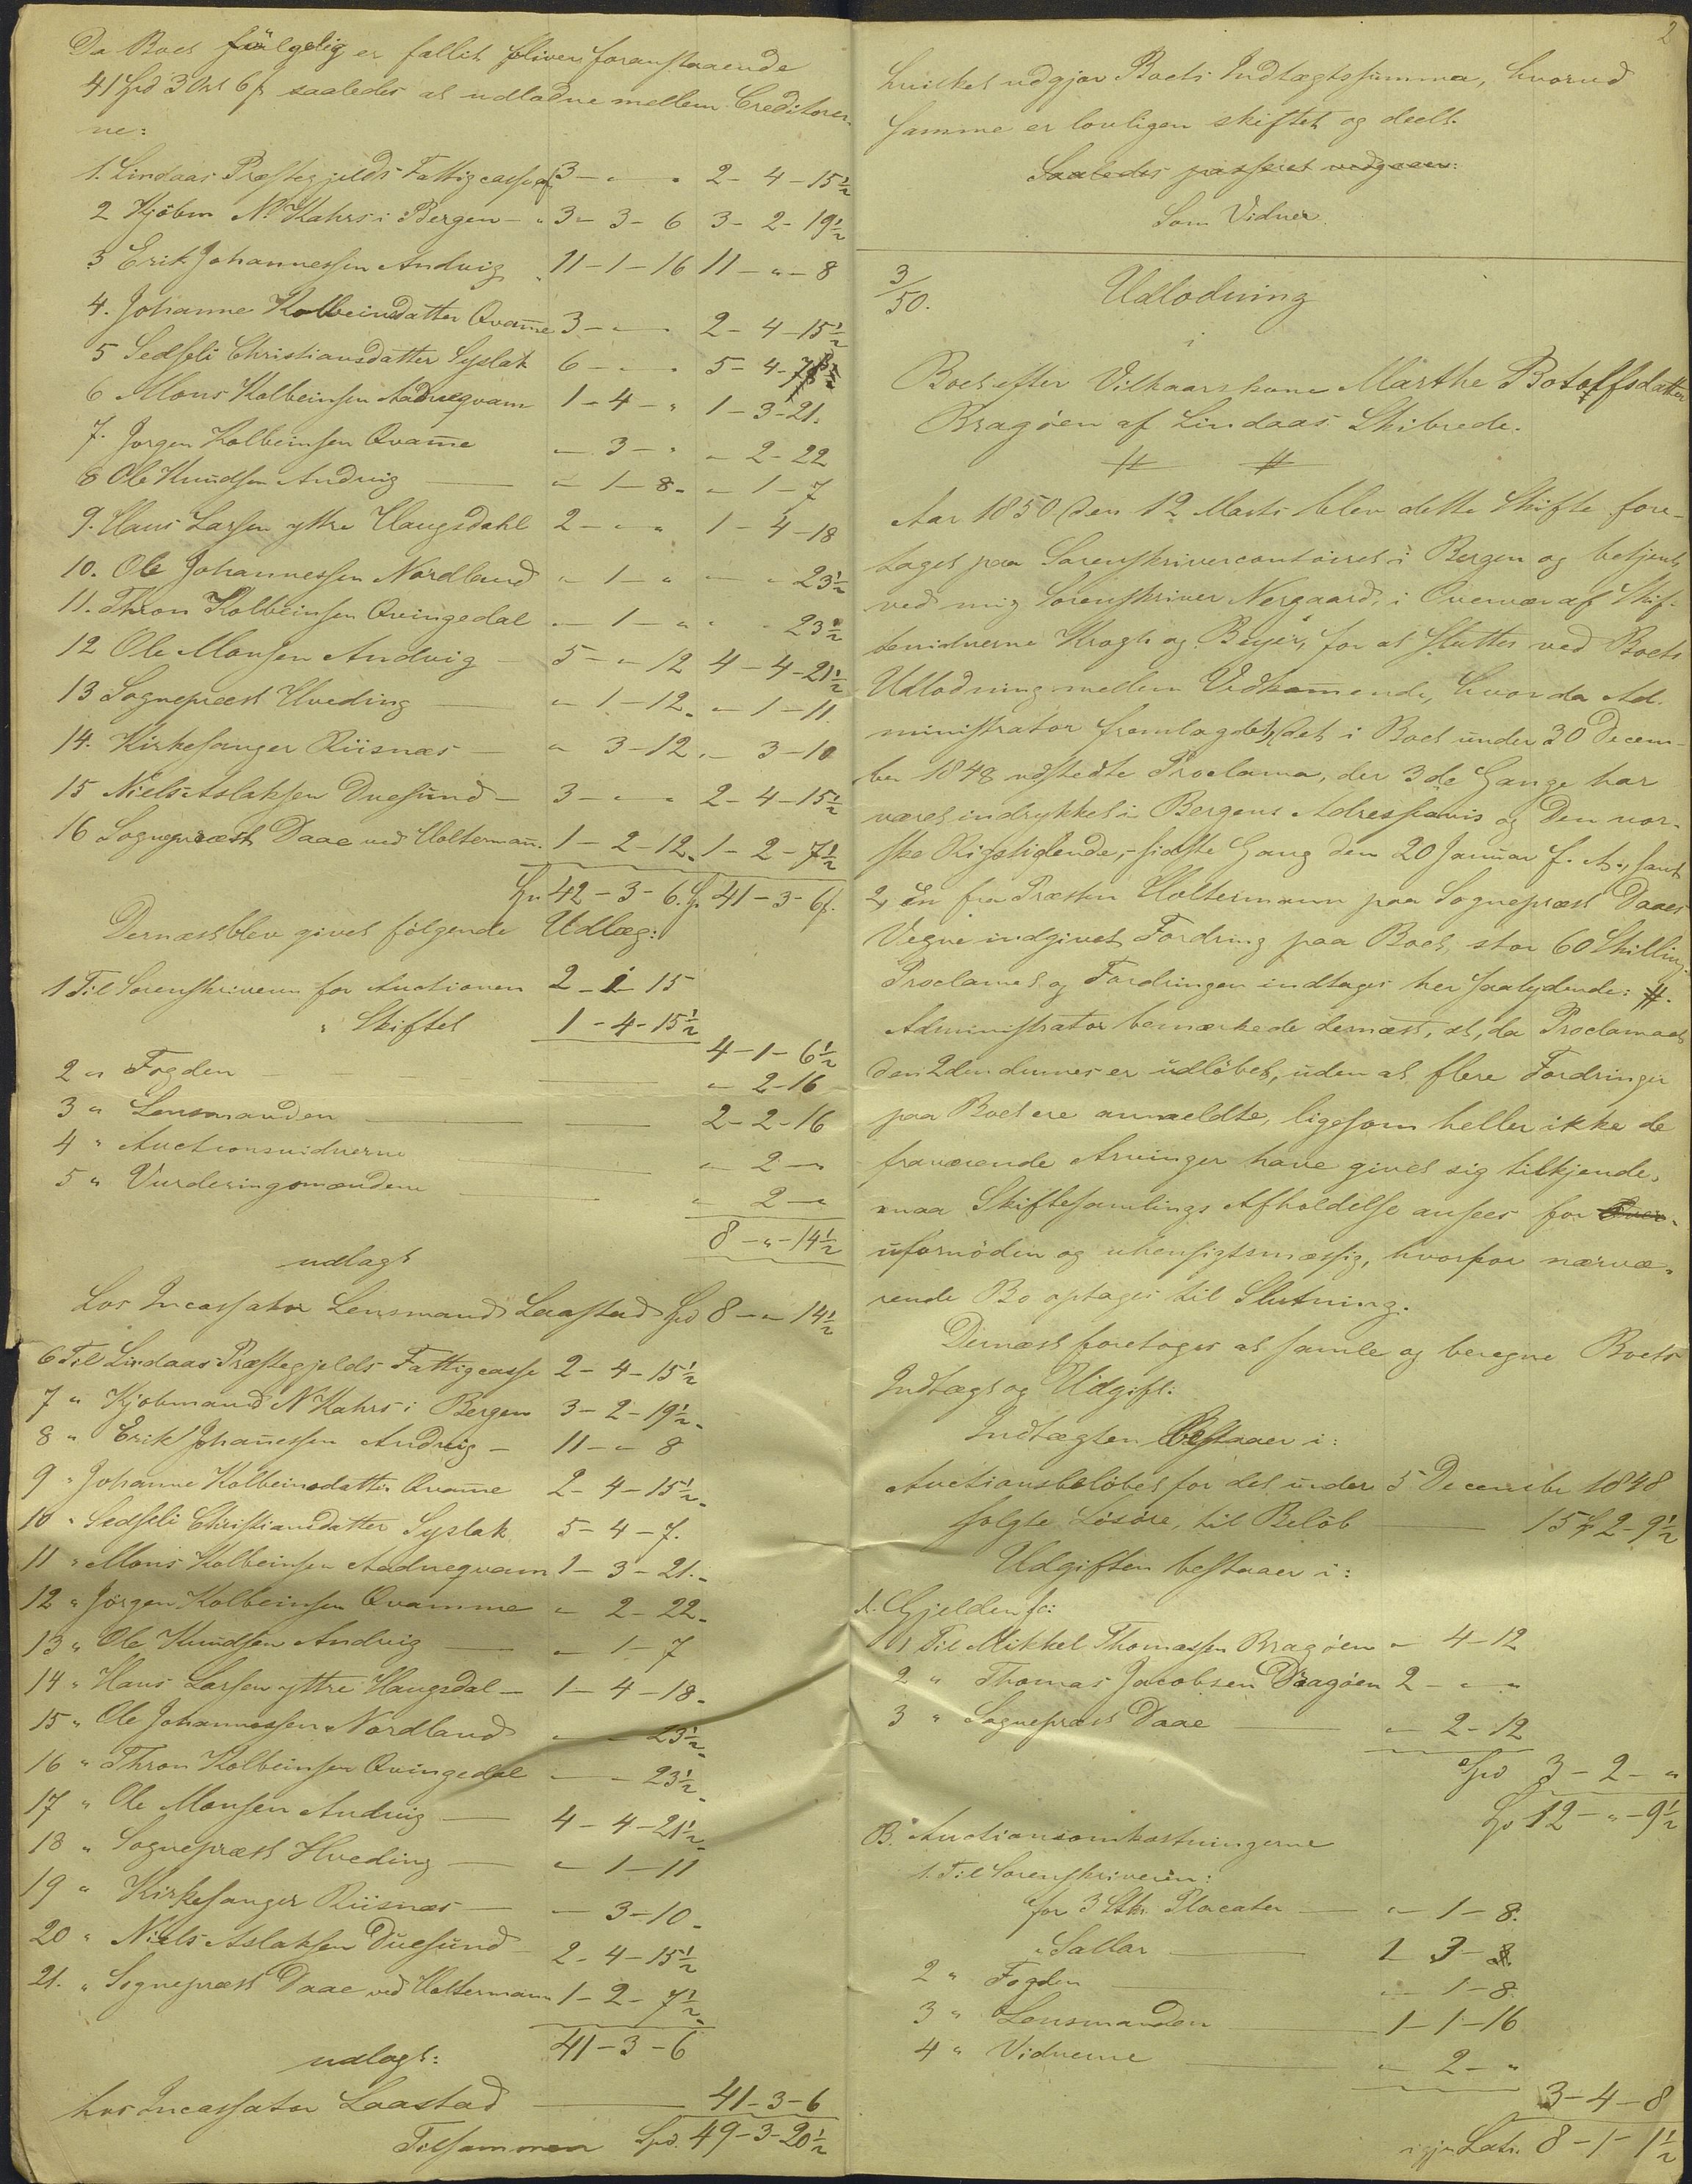 Da Boet fúlgelig er fallit bliver foranstaaende
41 Spd 3 Ort 6 s saaledes at udlodne mellem Creditorer-
ne:
1. Lindaas Præstegjelds Fattigcasse 3 - " - " 2 - 4 - 15½
2 Kjöbm N. Kahrs i Bergen - " 3 - 3 - 6 3 - 2 - 19½
3 Erik Johannessen Andvig " 11 - 1 - 16 11 - " - 8
4. Johanne Kolbeinsdatter Qvam̄e 3 - " - " 2 - 4 - 15½
5 Sedseli Christiansdatter Syslak 6 - " - " 5 - 4 - 7
6 Mons Kolbeinsen Aadneqvam 1 - 4 - " 1 - 3 - 21.
7. Jorgen Kolbeinsen Qvam̄e " - 3 - " " - 2 - 22
8 Ole Knudsen Andvig " - 1 - 8 - " - 1 - 7
9. Hans Larsen yttre Haugsdahl 2 - " - " 1 - 4 - 18
10. Ole Johannessen Nordland " - 1 - " " - " 23½
11. Thron Kolbeinsen Qvingedal " - 1 - " " - " 23½
12 Ole Monsen Andvig - 5 - " - 12 4 - 4 - 21½
13 Sognepræst Hveding " - 1 - 12 - " - 1 - 11.
14. Kirkesanger Riisnæs - " 3 - 12 " - 3 - 10
15 Niels Aslaksen Duesund - 3 - " - " 2 - 4 - 15½
16 Sognepræst Daae ved Holterman̄. 1 - 2 - 12 - 1 - 2 - 7½
Spd 42 - 3 - 6. Sp. 41 - 3 - 6 s.
Dernæst blev givet følgende Udlæg:
1 Til Sorenskriveren for Auctionen 2 - 1 - 15
" Skiftet 1 - 4 - 15½
4 - 1 - 6½
2 " Fogden " - 2 - 16
3 " Lensmanden 2 - 2 - 16
4 " Auctionsvidnerne " - 2 - "
5 " Vurderingsmændene " 2 - "
8 - " - 14½
udlagt
hos Incassator Lensmand Laastad Spd 8 - " - 14½
6 Til Lindaas Præstegjelds Fattigcasse 2 - 4 - 15½
7 " Kjöbmand N Kahrs i Bergen 3 - 2 - 19½ -
8 " Erik Johan̄essen Andvig - 11 - " - 8
9 " Johanne Kolbeinsdatter Qvam̄e 2 - 4 - 15½ -
10 " Sedseli Christiansdatter Syslak 5 - 4 - 7.
11 " Mons Kolbeinsen Aadneqvam 1 - 3 - 21. -
12 " Jörgen Kolbeinsen Qvamme " - 2 - 22 -
13 " Ole Knudsen Andvig " - 1 - 7
14 " Hans Larsen yttre Haugsdal - 1 - 4 - 18 -
15 " Ole Johannessen Nordland " - " - 23½ -
16 " Thron Kolbeinsen Qvingedal " - " - 23½ -
17 " Ole Monsen Andvig 4 - 4 - 21½ -
18 " Sognepræst Hveding " - 1 - 11
19 " Kirkesanger Riisnæs " - 3 - 10 -
20 " Niels Aslaksen Duesund 2 - 4 - 15½
21. " Sognepræst Daae ved Holtermann 1 - 2 - 7½ -
41 - 3 - 6
udlagt:
hos Incassator Laastad 41 - 3 - 6
Tilsammen Spd. 49 - 3 - 20½
2
hvilket udgjør Boets Indtægtssumma, hvorved
samme er lovligen skiftet og deelt.
Saaledes passeret vedgaaer:
Som Vidner.
3/50.
Udlodning
i
Boet efter Vilkaarskone Marthe Botolfsdatter
Bragøen af Lindaas Skibrede.
Aar 1850 den 12 Marts blev dette Skifte fore-
taget paa Sorenskrivercontoiret i Bergen og betjent
ved mig Sorenskriver Nergaard, i Overvær af Skif-
tevidnerne Krogh og Beyer, for at sluttes ved Boets
Udlodning mellem Vedkom̄ende, hvor da Ad-
ministrator fremlagde 1, det i Boet under 30 Decem-
ber 1848 udstedte Proclama, der 3de Gange har
været indrykket i Bergens Adresseavis og Den nor-
ske Rigstidende, - sidste Gang den 20 Januar f. A., samt
2, En fra Præsten Holtermann paa Sognepræst Daaes
Vegne indgivet Fordring paa Boet, stor 60 Skilling
Proclamet og Fordringen indtages her saalydende: #.
Administrator bemærkede dernæst, at, da Proclamaet
den 2den dennes er udlöbet, uden at flere Fordringer
paa Boet ere anmeldte, ligesom heller ikke de
fraværende Arvinger have givet sig tilkjende,
maa Skiftesamlings Afholdelse ansees for
ufornöden og uhensigtsmæssig, hvorfor nærvæ-
rende Bo optages til Slutning.
Dernæst foretoges at samle og beregne Boets
Indtægt og Udgift.
Indtægten Bestaaer i:
Auctionsbelöbet for det under 5 December 1848
solgte Lösöre, til Belöb 15 Sp 2 - 9½
Udgiften bestaaer i:
A. Gjelden sc:
1 Til Mikkel Thomassen Bragöen " - 4 - 12
2 " Thomas Jacobsen Dragöen 2 - " - "
3 " Sognepræst Daae " - 2 - 12
Spd 3 - 2 - "
Sp 12 - " - 9½
B. Auctionsomkostningerne
1. Til Sorenskriveren:
for 3 Stk. Placater " - 1 - 8.
" Sallar 1 3 - 8
2 " Fogden " - 1 - 8.
3 " Lensmanden 1 - 1 - 16
4 " Vidnerne " - 2 - "
3 - 4 - 8
igjen Latr. 8 - 1 - 1½